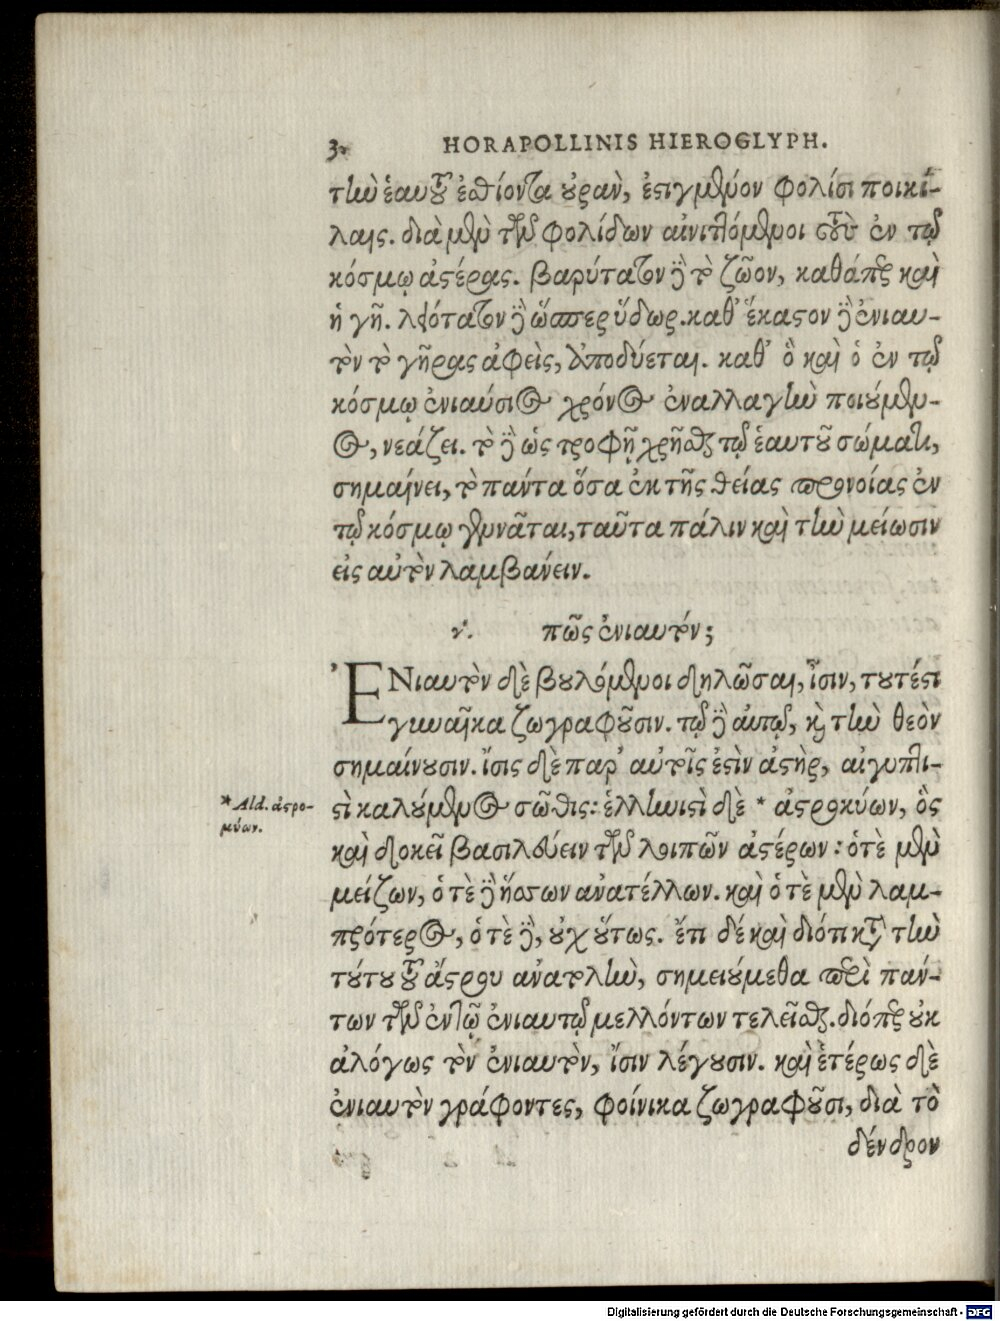 3 HORAPOLLINIS HIEROGLYPH.
τὴν ἑαυτοῦ ἐσθίοντα οὐρὰν, ἐστιγμένον φολίσι ποικί-
λαις. διὰ μὲν τῶν φολίδων αἰνιττόμενοι τοὺς ἐν τῷ
κόσμῳ ἀστέρας. βαρύτατον δὲ τὸ ζῶον, καθάπερ καὶ
ἡ γῆ. λειότατον δὲ ὥσπερ ὕδωρ. καθ' ἕκαστον δὲ ἐνιαυ-
τὸν τὸ γῆρας ἀφεὶς, ἀποδύεται. καθ' ὃ καὶ ὁ ἐν τῷ
κόσμῳ ἐνιαύσιος χρόνος ἐναλλαγὴν ποιούμεν-
ος, νεάζει. τὸ δὲ ὡς τροφῇ χρῆσθαι τῷ ἑαυτοῦ σώματι,
σημαίνει, τὸ πάντα ὅσα ἐκ τῆς θείας προνοίας ἐν
τῷ κόσμῳ γεννᾶται, ταῦτα πάλιν καὶ τὴν μείωσιν
εἰς αὐτὸν λαμβάνειν.
γ. πῶς ἐνιαυτόν;
ἘΝιαυτὸν δὲ βουλόμενοι δηλῶσαι, ἶσιν, τουτέστι
γυναῖκα ζωγραφοῦσιν. τῷ δὲ αὐτῷ, καὶ τὴν θεὸν
σημαίνουσιν. ἶσις δὲ παρ' αὐτοῖς ἐστὶν ἀστὴρ, αἰγυπτι-
στὶ καλούμενος σῶθις: ἑλληνιστὶ δὲ * ἀστροκύων, ὃς
καὶ δοκεῖ βασιλεύειν τῶν λοιπῶν ἀστέρων: ὁτὲ μὲν
μείζων, ὁτὲ δὲ ἥσσων ἀνατέλλων. καὶ ὁτὲ μὲν λαμ-
πρότερος, ὁτὲ δὲ, οὐχ οὕτως. ἔτι δέ καὶ διότι κατὰ τὴν
τούτου τοῦ ἄστρου ἀνατολὴν, σημειούμεθα περὶ πάν-
των τῶν ἐν τῷ ἐνιαυτῷ μελλόντων τελεῖσθαι. διόπερ οὐκ
ἀλόγως τὸν ἐνιαυτὸν, ἶσιν λέγουσιν. καὶ ἑτέρως δὲ
ἐνιαυτὸν γράφοντες, φοίνικα ζωγραφοῦσι, διὰ τὸ
δένδρον
* Ald. ἀστρο-
μύων.
Digitalisierung gefördert durch die Deutsche Forschungsgemeinschaft - DFG